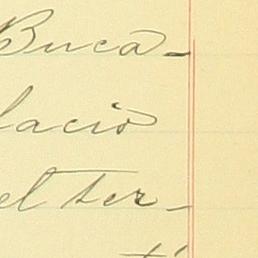 Buca-
lacio
el ter-